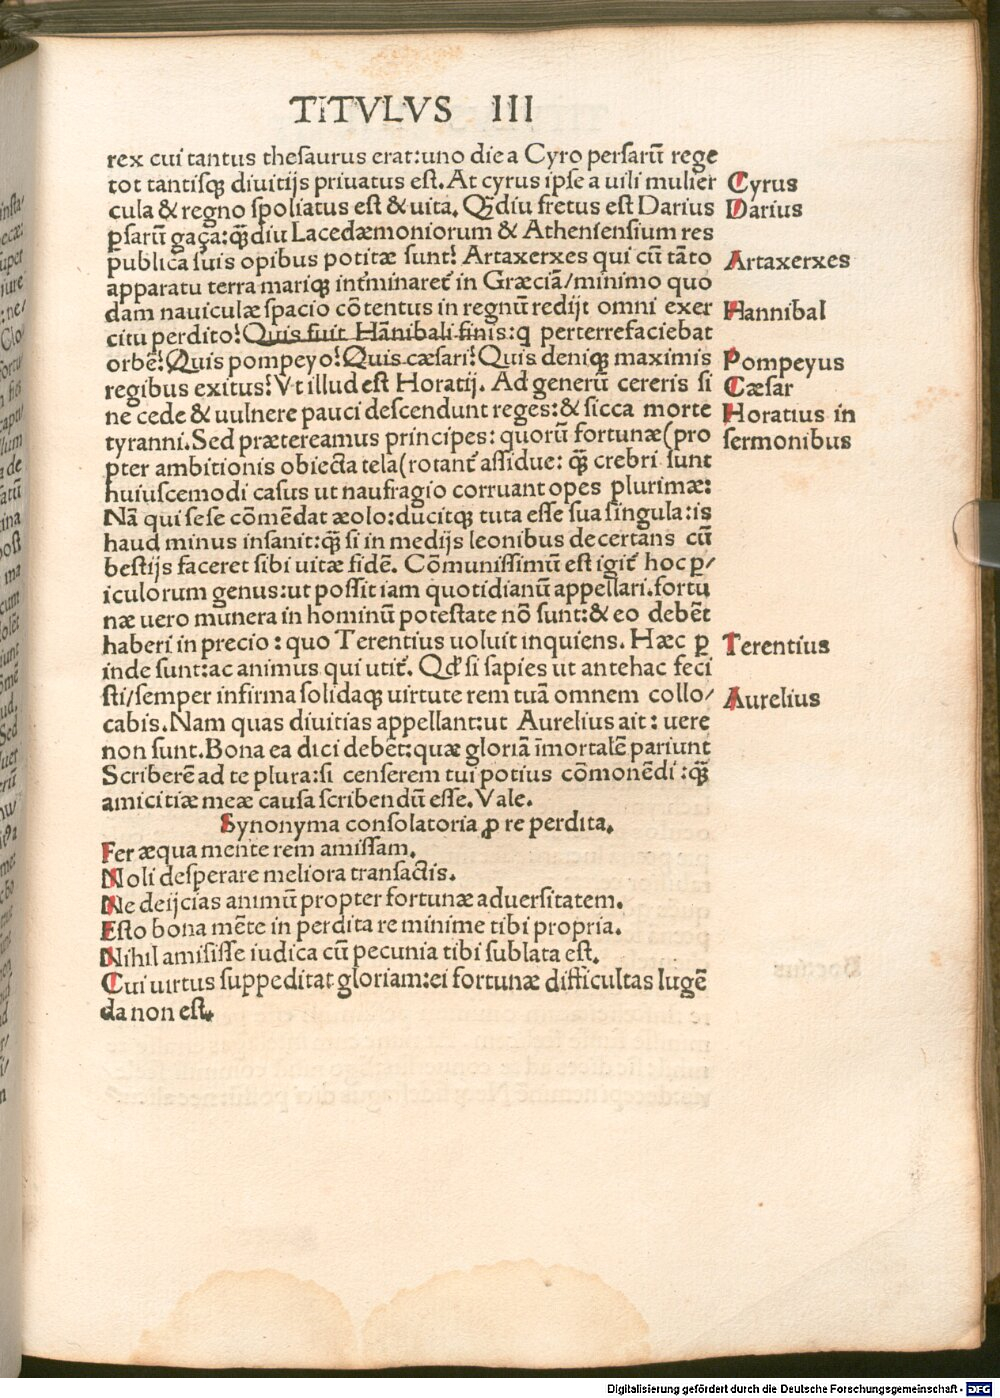 TITVLVS III
rex cui tantus theſaurus erat:uno die a Cyro perſarū rege
tot tantiſqꝫ diuitijs priuatus eſt. At cyrus ipſe a uili mulier
Cyrus
cula & regno ſpoliatus eſt & uita. Qͣdiu fretus eſt Darius
Darius
ꝑſarū gaça:qͣꝫdiu Lacedæmoniorum & Athenienſium res
publica ſuis opibus potitæ ſunt? Artaxerxes qui cū tāto
Artaxerxes
apparatu terra mariqꝫ int̄minaret᷑ in Græciā/minimo quo
dam nauiculæ ſpacio cōtentus in regnū redijt omni exer
Hannibal
citu perdito? Quis fuit Hānibali finis:q perterrefaciebat
orbē? Quis pompeyo? Quis cæſari? Quis deniqꝫ maximis
Pompeyus
regibus exitus? Vt illud eſt Horatij. Ad generū cereris ſi
Cæſar
ne cede & uulnere pauci deſcendunt reges:& ſicca morte
Horatius in
tyranni. Sed prætereamus principes: quorū fortunæ(pro
ſermonibus
pter ambitionis obiecta tela(rotant᷑ aſſidue: qͣꝫ crebri ſunt
huiuſcemodi caſus ut naufragio corruant opes plurimæ:
Nā qui ſeſe cōmēdat æolo:ducitqꝫ tuta eſſe ſua ſingula:is
haud minus inſanit:qͣꝫ ſi in medijs leonibus decertans cū
beſtijs faceret ſibi uitæ fidē. Cōmuniſſimū eſt igit᷑ hoc ꝑ/
iculorum genus:ut poſſit iam quotidianū appellari.fortu
næ uero munera in hominū poteſtate nō ſunt:& eo debēt
haberi in precio : quo Terentius uoluit inquiens. Hæc ꝑ
Terentius
inde ſunt:ac animus qui utit᷑. Qd̓ ſi ſapies ut antehac feci
ſti/ſemper infirma ſolidaqꝫ uirtute rem tuā omnem collo/
Aurelius
cabis.Nam quas diuitias appellant:ut Aurelius ait : uere
non ſunt.Bona ea dici debēt:quæ gloriā īmortalē pariunt
Scriberē ad te plura:ſi cenſerem tui potius cōmonēdi :qͣꝫ
amicitiæ meæ cauſa ſcribendū eſſe. Vale.
Synonyma conſolatoria ꝓ re perdita.
Fer æqua mente rem amiſſam.
Noli deſperare meliora tranſactis.
Ne deijcias animū propter fortunæ aduerſitatem.
Eſto bona mēte in perdita re minime tibi propria.
Nihil amiſiſſe iudica cū pecunia tibi ſublata eſt.
Cui uirtus ſuppeditat gloriam:ei fortunæ difficultas lugē
da non eſt.
Digitalisierung gefördert durch die Deutsche Forschungsgemeinschaft - DFG